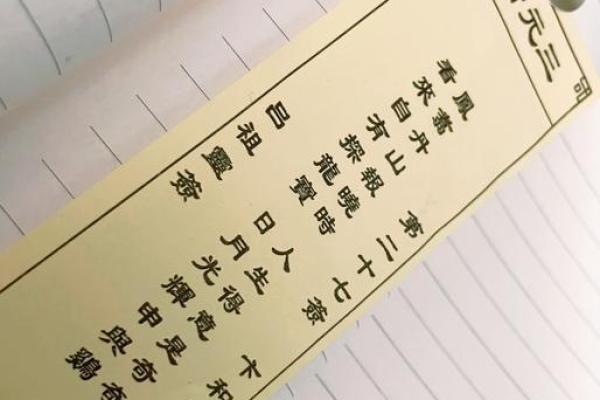 三元
第二十七簽 卞和
鳳翥丹山報曉時 人生得意是奇
看來自有探龍寶 日月光輝申與鷄
呂祖靈簽